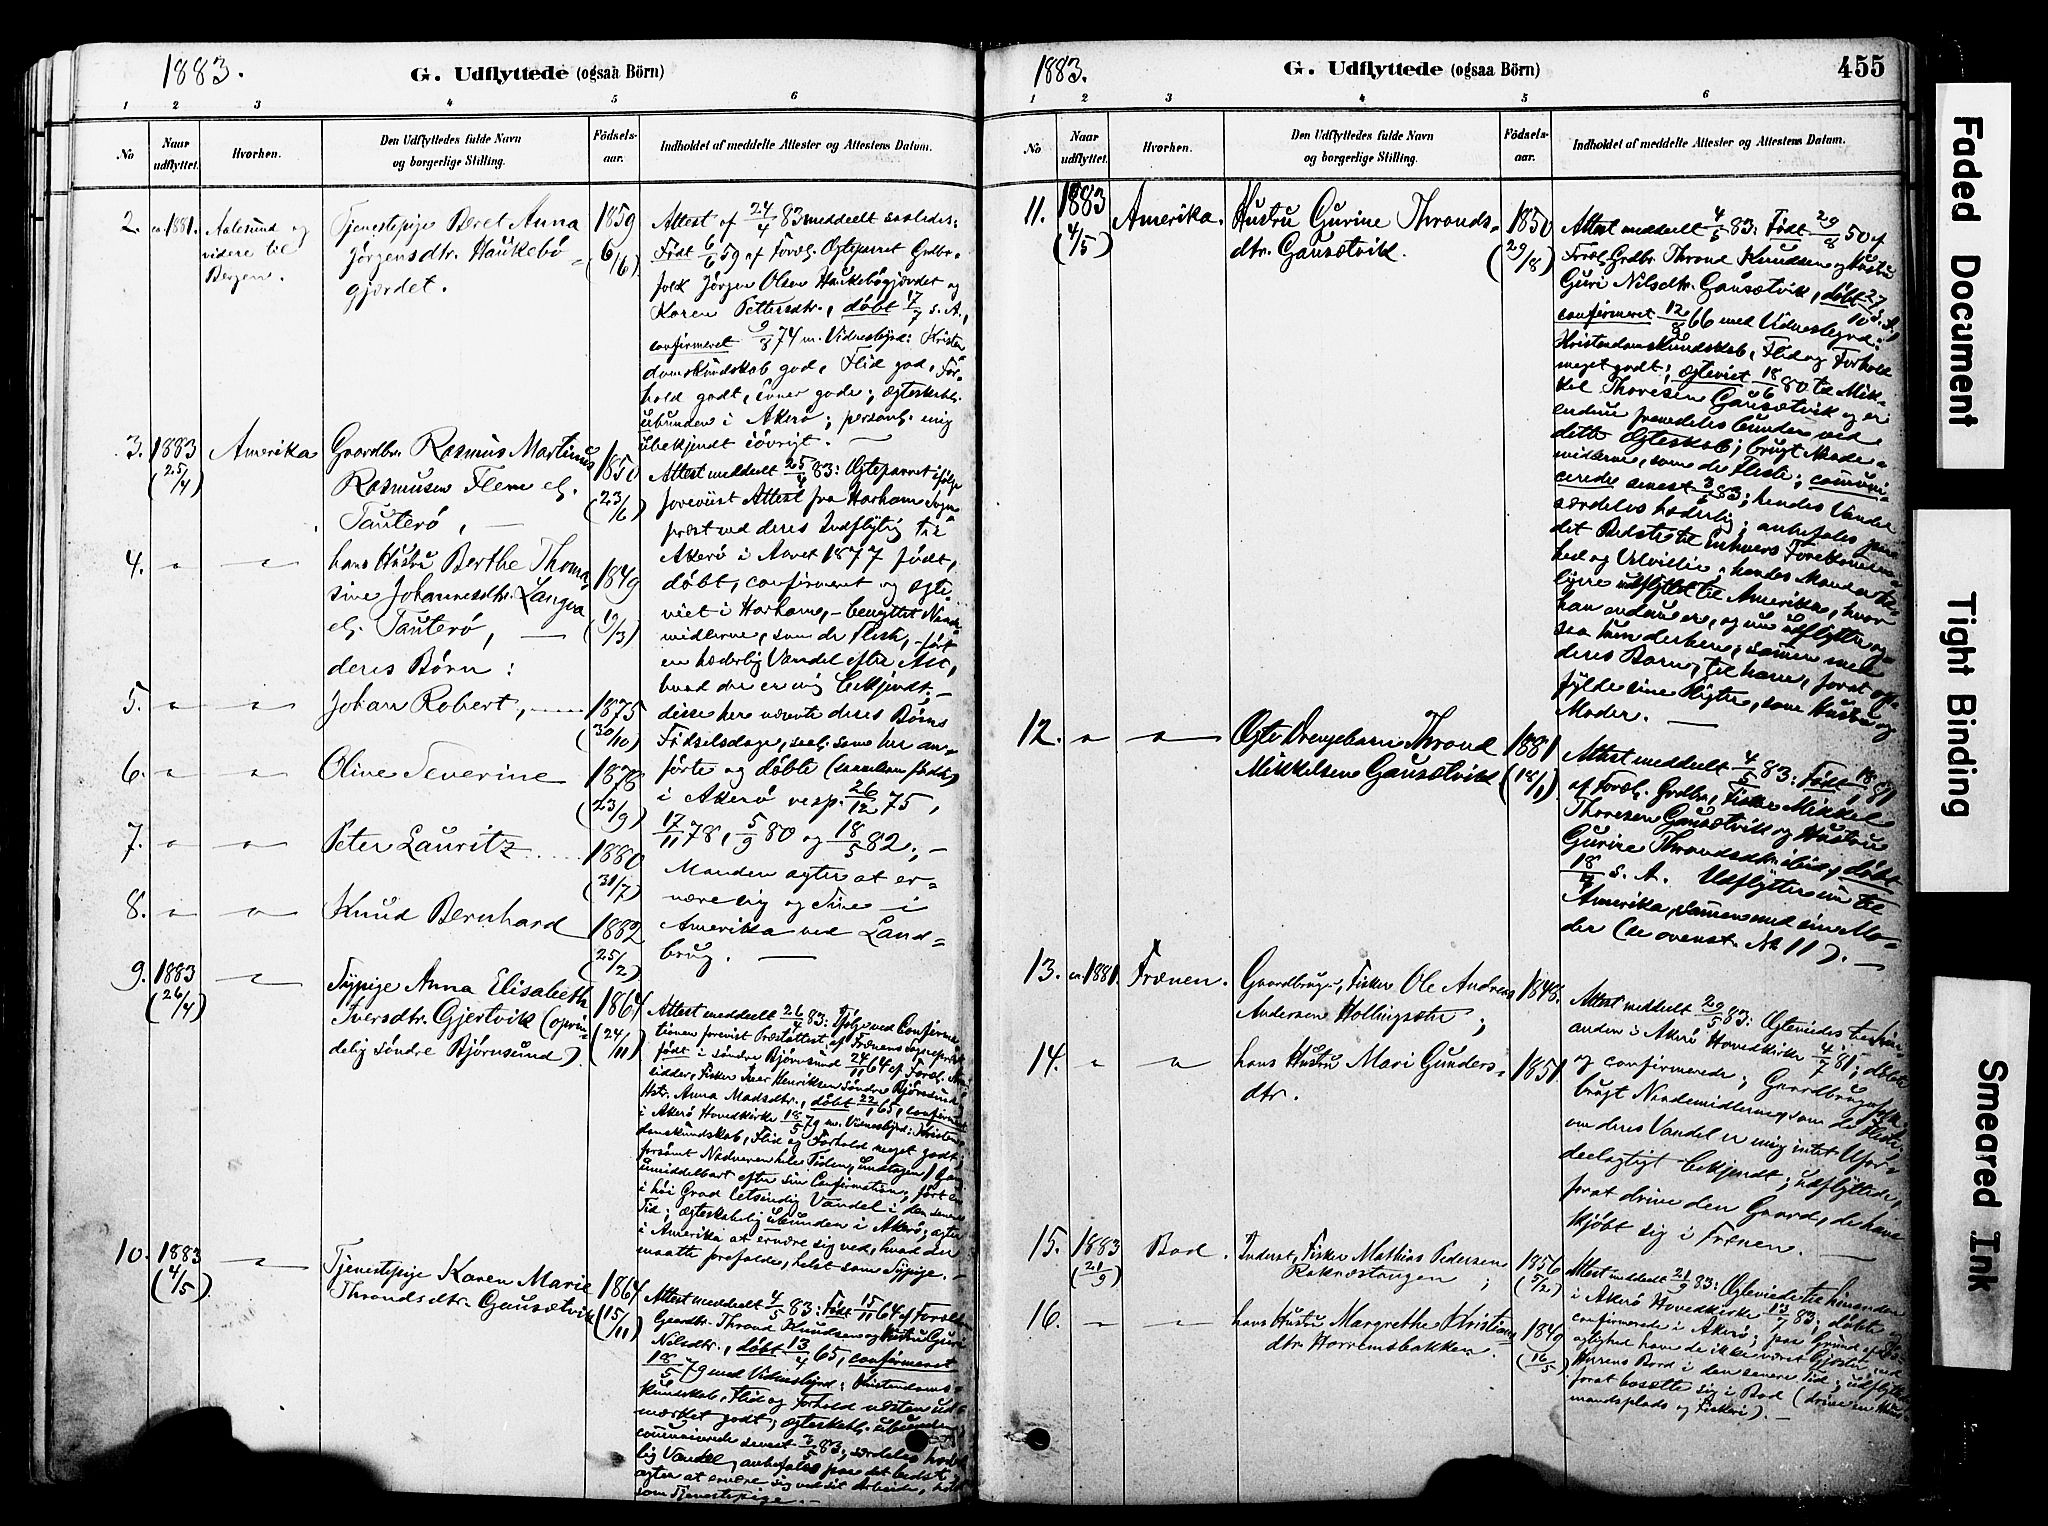 1883.
G. Udflyttede (ogsaa Börn)
1 2 3 4 5 6
No
Naar udflyttet.
Hvorhen.
Den Udflyttedes fulde Navn
og borgerlige Stilling.
Födsels-
aar.
Indholdet af meddelte Attester og Attestens Datum.
2. ca. 1881. Aalesund og
videre til
Bergen.
Tjenestepige Beret Anna
Jörgensdtr. Haukebö
gjerdet.
1859
(6/6)
Attest af 24/4 83 meddeelt saaledes:
Födt 6/6 59 af Foræl. Ægteparret Grdbr-
folk Jörgen Olsen Haukebögjerdet og
Karen Pettersdtr., döbt 17/7 s. A.,
confirmeret 9/8 74 m. Vidnesbyrd: Kristen-
domskundskab god, Flid god, For-
hold godt, Evner gode; ægteskabl.
ubunden i Akerö; personl. mig
ubekjendt iövrigt. —
3. 1883
(25/4)
Amerika
Gaardbr. Rasmus Martinus
Rasmusen Flem el.
Tauterö, —
1850
(23/6)
Attest meddeelt 25/4 83: Ægteparret ifölge
foreviist Attest fra Harhams Sogne-
præst ved deres Indflytng til
Akerö i Aaret 1877 födt,
döbt, confirmeret og ægte-
viet i Harham, - benyttet Naade-
midlerne, som de Fleste, - fört
en hæderlig Vandel efter Alt,
hvad der er mig bekjendt; —
disse her nævnte deres Börns
Födselsdage, saal. som her an-
förte og döbte (sammen födte)
i Akerö resp. 26/12 75,
17/11 78, 5/9 80 og 18/5 82; —
Manden agter at er-
nære sig og Sine i
Amerika ved Land-
brug. —
4. " "
hans Hustru Berthe Thoma-
sine Johannesdtr. Langva
el. Tauterö, —
1849
(19/3)
deres Börn:
5. " " Johan Robert, 1875
(30/10)
6. " " Oline Severine 1878
(23/9)
7. " " Peter Lauritz 1880
(31/7)
8. " " Knud Bernhard 1882
(25/2)
9. 1883
(26/4)
"
Sypige Anna Elisabeth
Iversdtr. Gjertvik (oprin-
delig söndre Björnsund)
1864
(24/11)
Attest meddeelt 26/4 83: Ifölge ved Confirma-
tionen foreviist Præsteattest af Frænens Sognepræst
födt i söndre Björnsund 24/11 64 af Foræl.
sidder, Fisker Iver Henriksen Söndre Björnsund,
Hstr. Anna Madsdtr., döbt 22/1 65, confirmeret
i Akerö Hovedkirke 18/5 79 m. Vidnesbyrd: Kristen-
domskundskab, Flid og Forhold meget godt,
forsömt Nadveren hele Tiden, undtagen 1 Gang
umiddelbart efter sin Confirmation; fört en
i höi Grad letsindig Vandel i den senere
Tid; ægteskabelig ubunden i Akerö; agter
i Amerika at ernære sig ved, hvad der
maatte forefalde, helst som Sypige. —
10. 1883
(4/5)
"
Tjenestepige Karen Marie
Throndsdtr. Gausætvik
1864
(15/11)
Attest meddeelt 4/5 83: Födt 15/11 64 af Forældre
Gaardbr. Thrond Knudsen og Hustru Guri
Nilsdtr., döbt 13/4 65, confirmeret
18/5 79 med Vidnesbyrd: Kristendoms-
kundskab, Flid og Forhold næsten ud-
mærket godt; ægteskabl. ubunden;
communicerede senest 3/5 83; særdeles hæder-
lig Vandel, anbefales paa det bedste;
agter at ernære sig ved sit Arbeide, helst
som Tjenestepige. —
1883.
G. Udflyttede (ogsaa Börn)
455
1 2 3 4 5 6
No
Naar
udflyttet.
Hvorhen.
Den Udflyttedes fulde Navn
og borgerlige Stilling.
Födsels-
aar.
Indholdet af meddelte Attester og Attestens Datum.
11. 1883
(4/5)
Amerika.
Hustru Gurine Thronds-
dtr. Gausætvik.
1850
(29/8)
Attest meddeelt 4/5 83: Födt 29/8 50 af
Foræl. Grdbr. Thrond Knudsen og Hustru
Guri Nilsdtr. Gausætvik, döbt 27/10 s. A.,
confirmeret 12/8 66 med Vidnesbyrd:
Kristendomskundskab, Flid og Forhold
meget godt; ægteviet 18/6 80 til Mik-
kel Thoresen Gausætvik og er
endnu fremdeles bunden ved
dette Ægteskab; brugt Naade-
midlerne, som de Fleste; communi-
cerede senest 3/6 83; hendes Vandel
særdeles hæderlig; anbefales paa
det Bedste til Enhvers Forekommen-
hed og Velvillie; hendes Mand er tid-
ligere udflyttet til Amerika, hvor
han endnu er, og nu udflytter og-
saa hun derhen, sammen med
deres Barn, til ham, forat op-
fylde sine Pligter, som Hustru og
Moder. —
12. " "
Ægte Drengebarn Thrond
Mikkelsen Gausætvik
1881
(18/1)
Attest meddeelt 4/5 83: Födt 18/1 81
af Foræl. Grdbr., Fisker Mikkel
Thoresen Gausætvik og Hustru
Gurine Throndsdtr. ibid., döbt
18/4 s. A. Udflytter nu til
Amerika, sammen med sin Mo-
der (se ovenst. No 11). —
13. ca. 1881. Frænen.
Gaardbruger, Fisker Ole Andreas
Andersen Hollingsæter;
1848.
Attest meddeelt 29/5 83: Ægteviedes til hin-
anden i Akerö Hovedkirke 4/7 81; döbte
og confirmerede; Gaardbrugerfolk;
brugt Naademidlerne, som de Fleste;
om deres Vandel er mig intet Ufor-
deelagtigt bekjendt; udflyttede,
forat drive den Gaard, de have
kjöbt sig i Frænen. —
14. " "
hans Hustru Mari Gunders-
dtr.
1851.
15. 1883
(21/9)
Bod.
Inderst, Fisker Mathias Pedersen
Raknæstangen;
1856
(5/2)
Attest meddeelt 21/9 83: Ægteviede til hinanden
i Akerö Hovedkirke 13/7 83; döbte og
confirmerede i Akerö; paa Grund af
have de ikke været Gjester ved
Herrens Bord i den senere Tid; udflytte,
forat bosætte sig i Bod (drive en Huus-
mandsplads og Fiskeri). —
16. " "
hans Hustru Margrethe Kristians-
dtr. Harremsbakken.
1849
(16/5)
Faded Document
Tight Binding
Smeared Ink